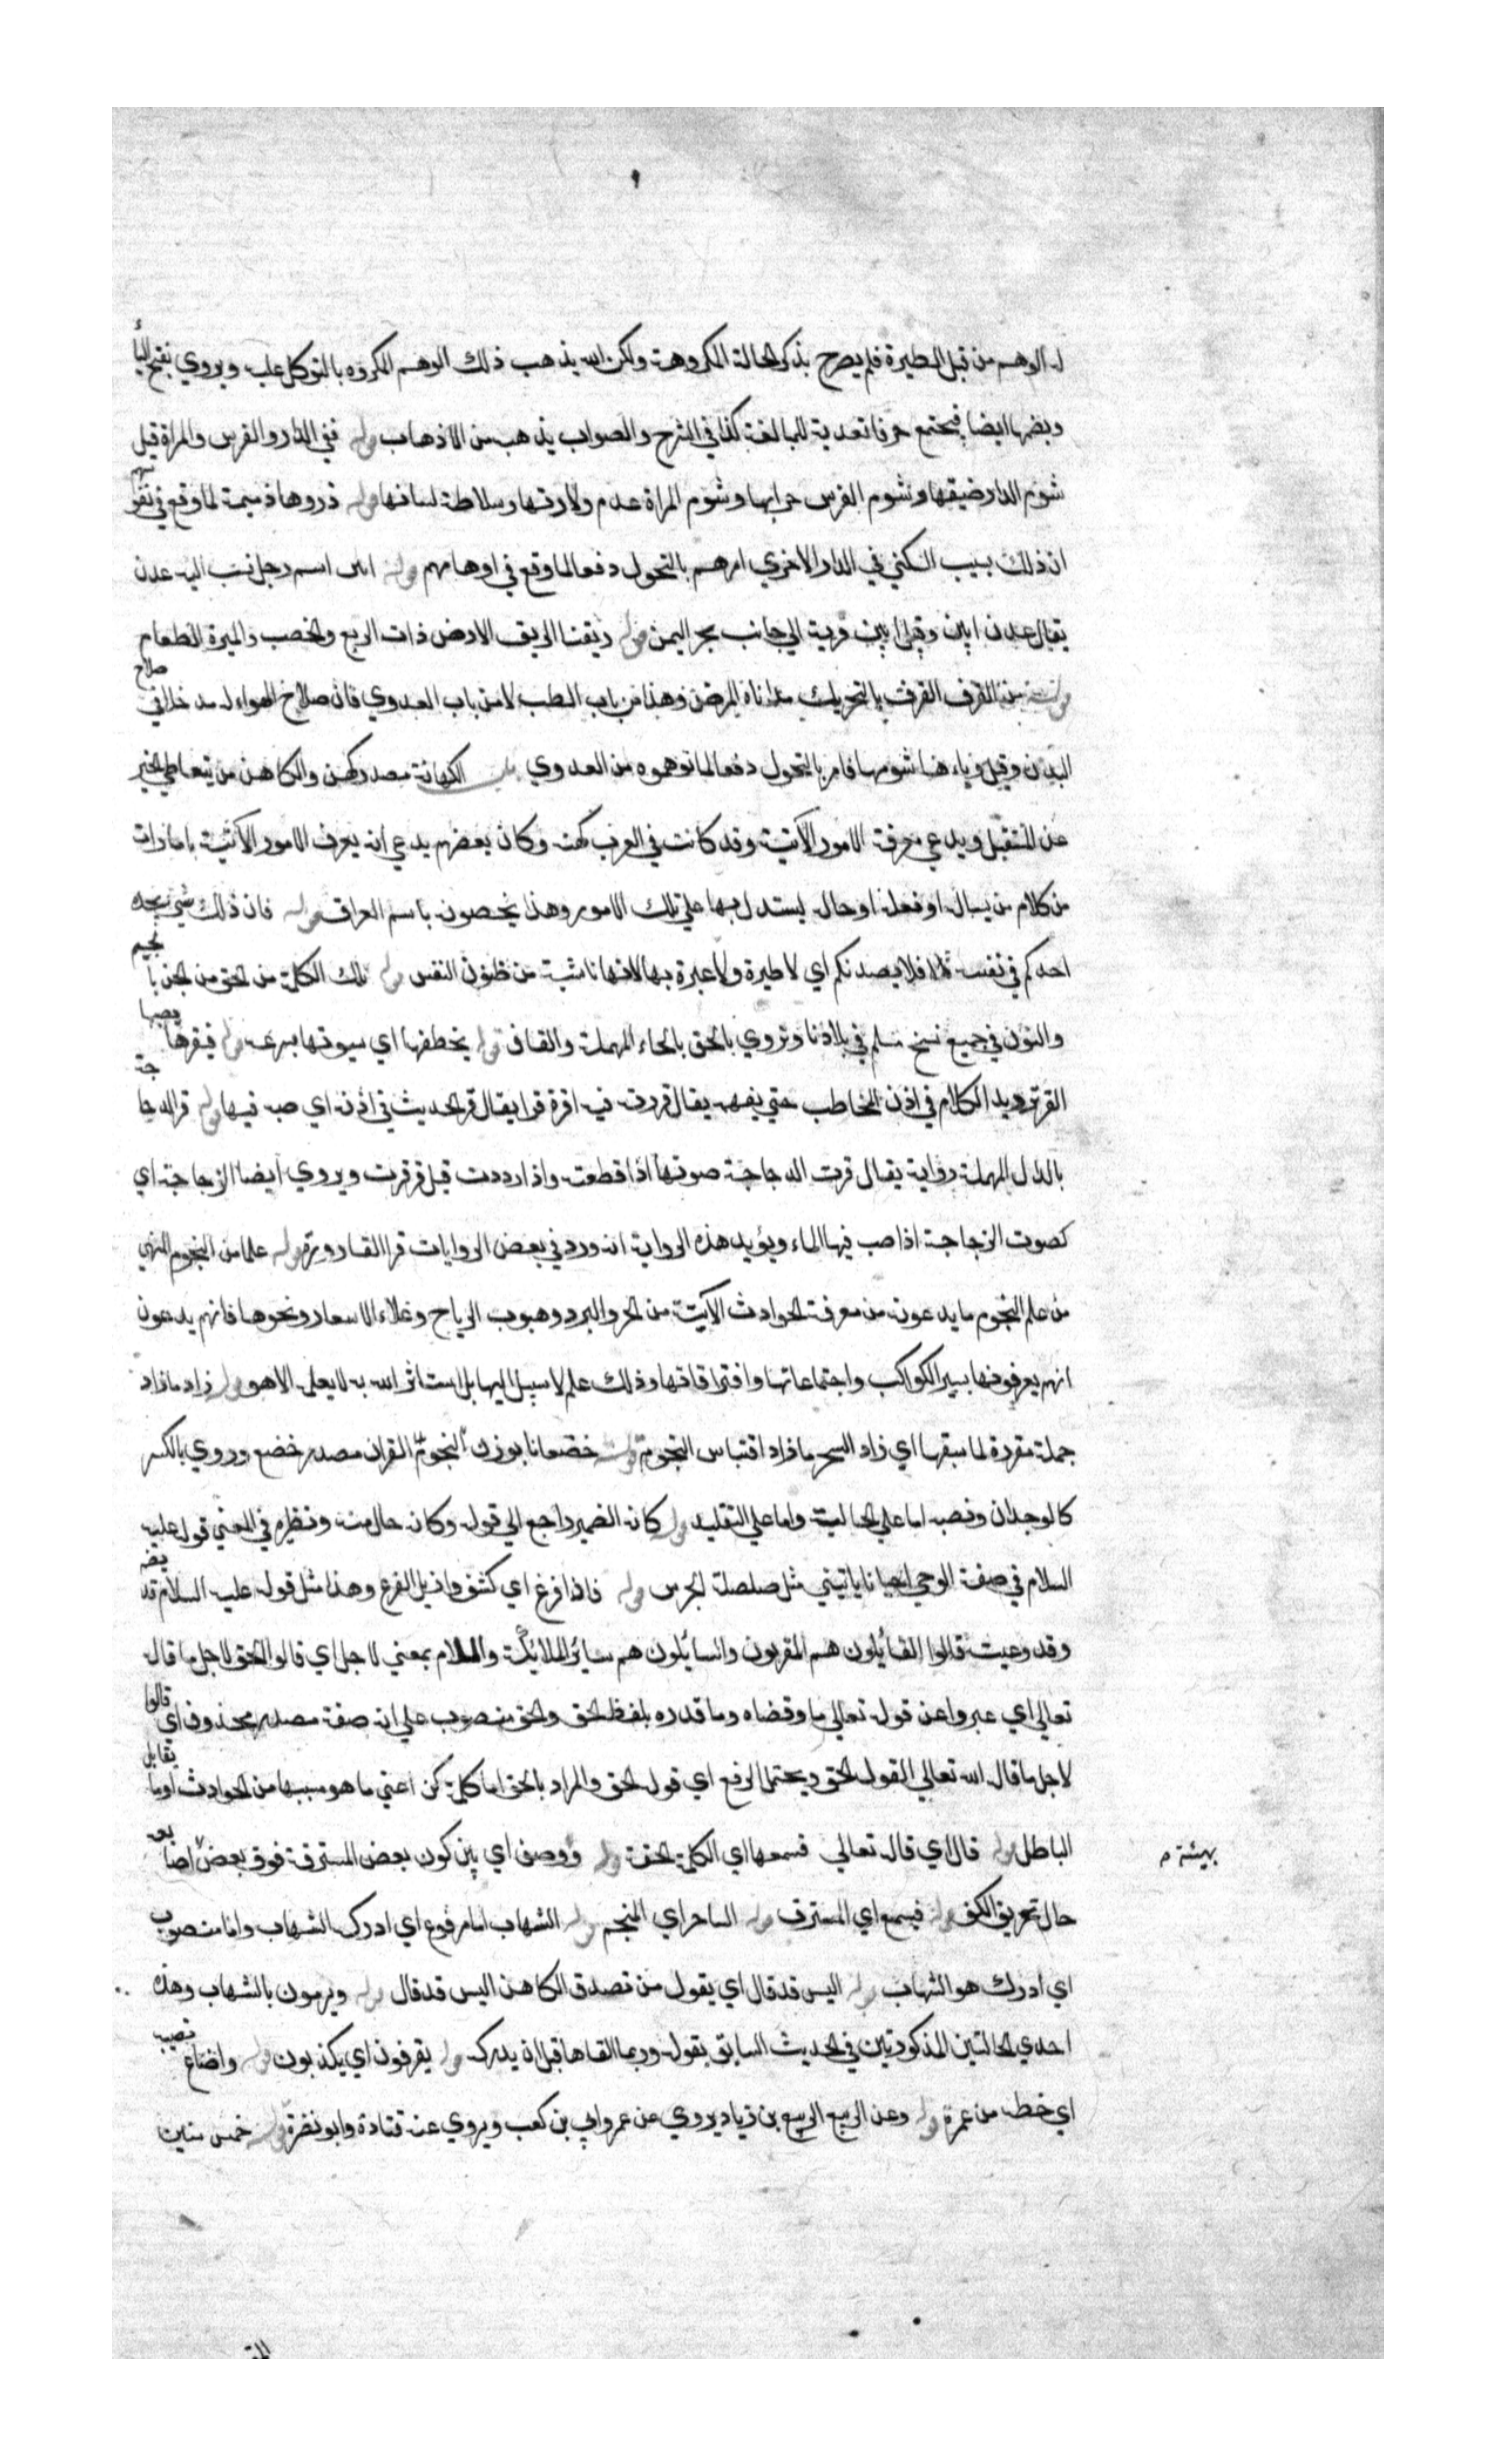 له الوهم من قبل الطيرة فلم يصرح بذكر الحالة المكروهة ولكن الله يذهب ذلك الوهم المكروه بالتوكل عليه ويروي بفتح اليأ
وبضمها ايضا فيجتمع حرفا تعدية للمبالغة كذا في الشرح والصواب يذهب من الاذهاب قوله ففي الدار والفرس والمراة قيل
شوم الدار ضيقها وشوم الفرس حرابها وشوم المراة عدم ولادتها وسلاطة لسانها قوله ذروها ذميمة لما وقع في نفوسهم
ان ذلك بسبب السكني في الدار الاخري امرهم بالتحول دفعا لما وقع في اوهامهم قوله ابين اسم رجل نسب اليه عدن
يقال عدن ابين وقيل ابين قرية الي جانب بحر اليمن قوله ريفنا الريف الارض ذات الربع والخصب والميرة الطعام
قوله من القرف القرف بالتحريك مداناة المرض وهذا من باب الطب لا من باب العدوي فان صلاح الهواء له مدخل في صلاح
البدن وقيل وباءها شومها فامر بالتحول دفعا لما توهموه من العدوي باب الكهانة مصدر كهن والكاهن من يتعاطي الخبر
عن المستقبل ويدعي معرفة الامور الآتية وقد كانت في العرب كهنة وكان بعضهم يدعي انه يعرف الامور الآتية بامارات
من كلام من يساله او فعله او حاله يستدل بها علي تلك الامور وهذا يخصونه باسم العراف قوله فان ذلك شي يجده
احدكم في نفسه فلا يصدنكم اي لا طيرة ولا عبرة بها لانها ناشية من ظنون النفس قوله تلك الكلمة من الحق من الجن بالجيم
والنون في جميع نسخ مسلم في بلادنا وتروي بالحق بالحاء المهملة والقاف قوله يخطفها اي يسوقها بسرعة قوله فيقرها يصبها
القر ترديد الكلام في اذن المخاطب حتي يفهمه يقال قررت فيه اقره قرا يقال قر الحديث في اذنه اي صبه فيها قوله قر الدجاجة
بالدال المهملة رواية يقال قرت الدجاجة صوتها اذا قطعته واذا رددت قيل قرقرت ويروي ايضا الزجاجة اي
كصوت الزجاجة اذا صب فيها الماء ويؤيد هذه الرواية انه ورد في بعض الروايات قر القارورة قوله علما من النجوم المنهي
من علم النجوم ما يدعونه من معرفة الحوادث الآتية من الحر والبرد وهبوب الرياح وغلاء الاسعار ونحوها فانهم يدعون
انهم يعرفونها بسير الكواكب واجتماعاتها وافتراقاتها وذلك علم لا سبيل اليها بل استاثر الله به لا يعلمه الا هو قوله زاد ما زاد
جملة مقررة لما سبقها اي زاد السحر ما زاد اقتباس النجوم قوله خضعانا بوزن القران مصدر خضع وروي بالكسر
كالوجدان ونصبه اما علي الحالية واما علي التقليد قوله كانه الضمير راجع الي قوله وكانه حال منه ونظيره في المعني قوله عليه
السلام في صفة الوحي احيانا ياتيني مثل صلصلة الجرس قوله فاذا فزع اي كشف وازيل الفزع وهذا مثل قوله عليه السلام فيفصم
وقد وعيت قالوا القائلون هم المقربون والسائلون هم سائر الملائكة واللام بمعني لاجل اي قالوا الحق لاجل ما قال
تعالي اي عبروا عن قوله تعالي ما وقضاه وما قدره بلفظ الحق والحق منصوب علي انه صفة مصدر محذوف اي قالوا
لاجل ما قال الله تعالي القول الحق ويحتمل الرفع اي قوله الحق والمراد بالحق اما كلمة كن اعني ما هو سببها من الحوادث او ما يقابل
الباطل قوله قال اي قال تعالي فسمعها اي الكلمة الحقة قوله ووصف اي بين كون بعض المسترقة فوق بعض
بهيئة م
حال تحريف الكف قوله فيسمع اي المسترق قوله الساحر اي المنجم قوله الشهاب اما مرفوع اي ادركه الشهاب واما منصوب
اي ادرك هو الشهاب قوله اليس قد قال اي يقول من تصدق الكاهن اليس قد قال قوله ويرمون بالشهاب وهذه
احدي الحالتين المذكورتين في الحديث السابق بقوله وربما القاها قبل ان يدركه قوله يقرفون اي يكذبون قوله واضاع نصيبه
اي حظه من عمره قوله وعن الربيع الربيع بن زياد يروي عن عمر وابي بن كعب ويروي عنه قتادة وابو نضرة قوله خمس سنين